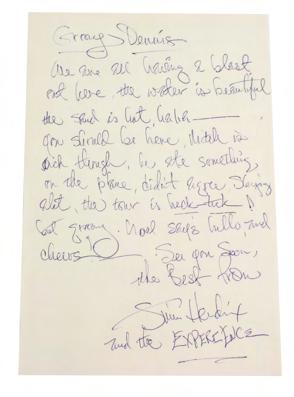 Groovy Dennis
We are all having a blast
out here, the water is beautiful
the sand is hot haha
you should be here, Mitch is
sick though, he ate something
on the plane, didn't agree
alot, the tour is heck-tick
but groovy. Noel says hello and
cheers See you soon,
the Best from
Jimi Hendrix
and the EXPERIENCE